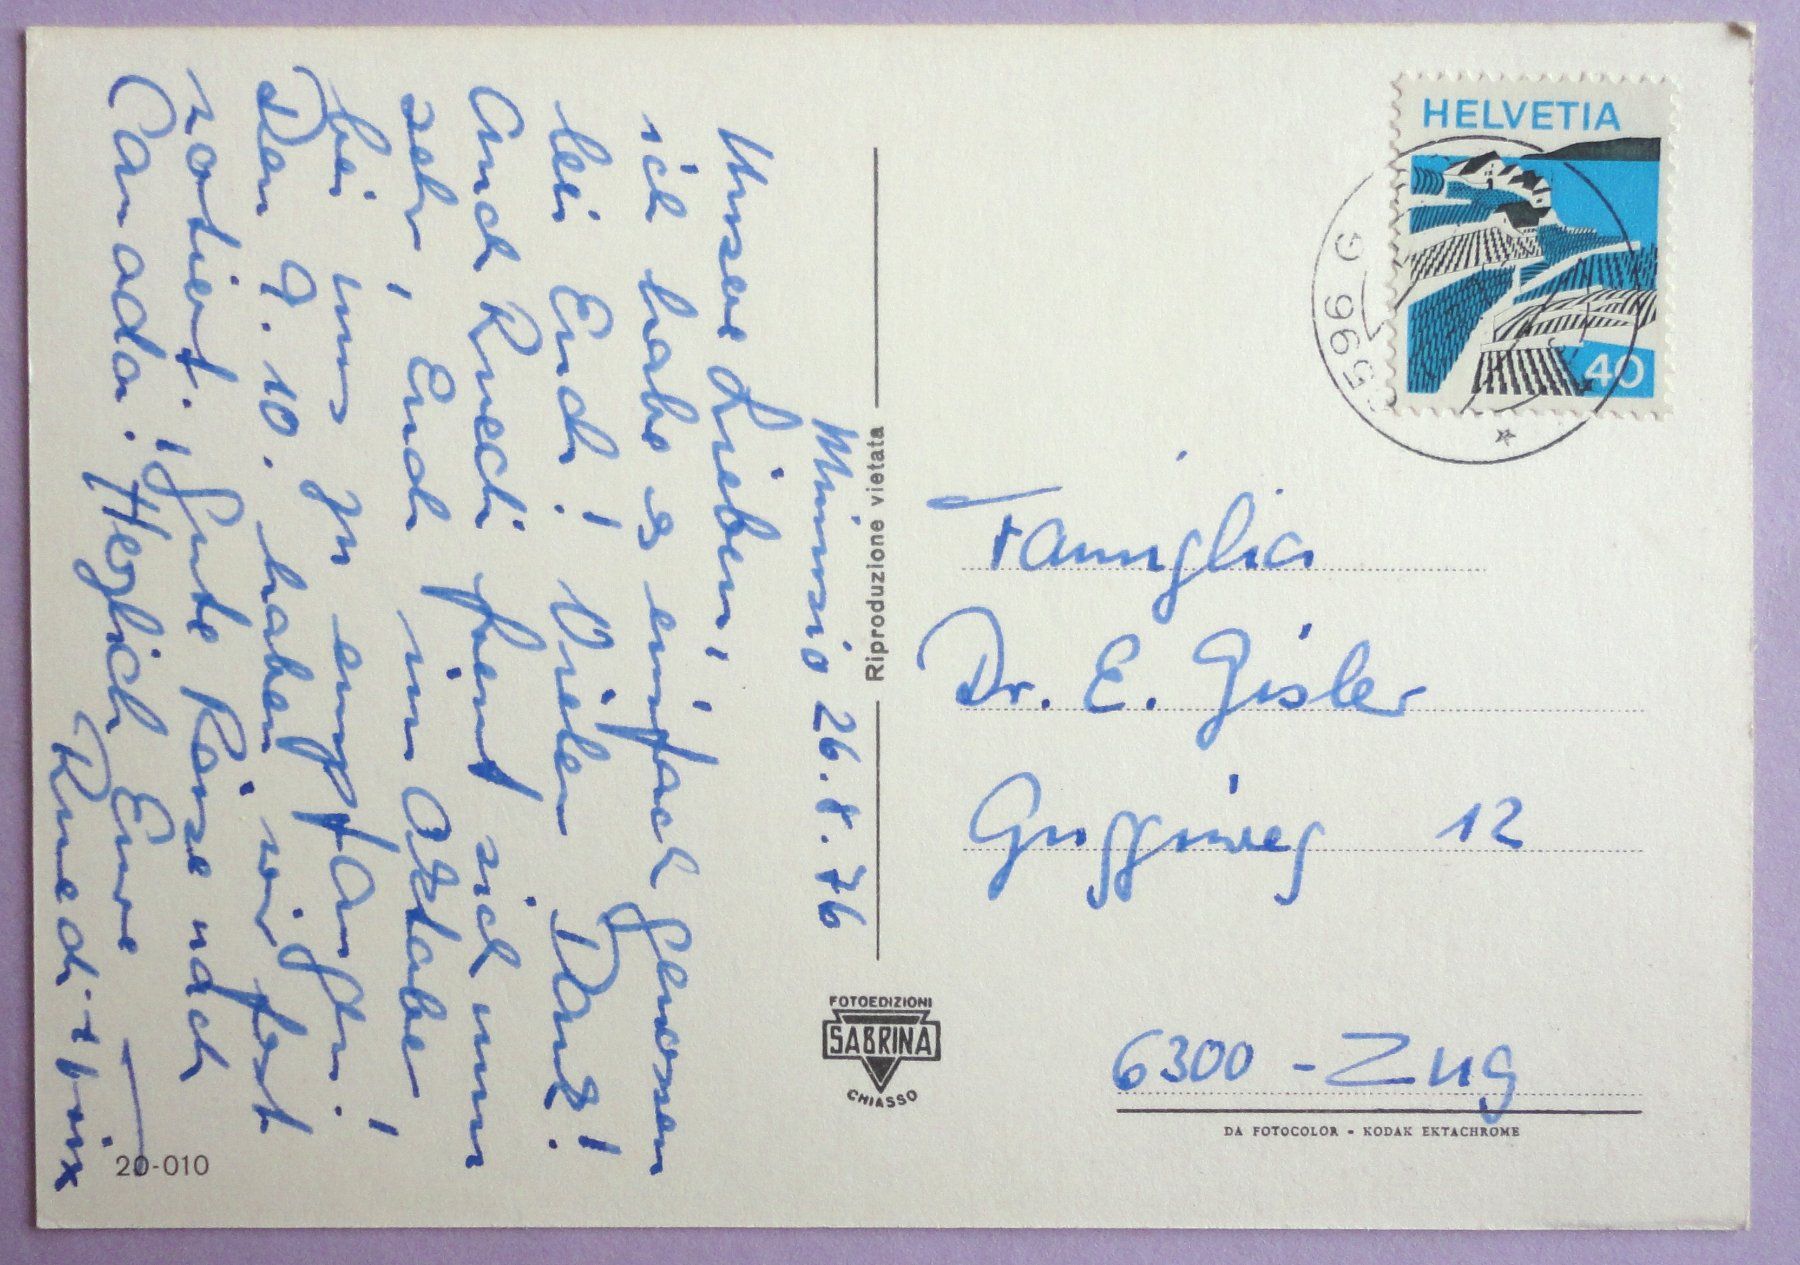 Minusio 26.8.76
Unsere Lieben,
ich habe es einfach genossen
bei Euch! Vielen Dank!
Auch Ruedi freut sich nun
sehr, Euch im Oktober
bei uns zu empfangen!
Den 9. 10. haben wir fest
notiert. Gute Reise nach
Canada! Herzlich Eure
Ruedi +
Riproduzione vietata
FOTOEDIZIONI
SABRINA
CHIASSO
20-010
HELVETIA
40
Famiglia
Dr. E. Gisler
Guggiweg 12
6300 - Zug
DA FOTOCOLOR - KODAK EKTACHROME